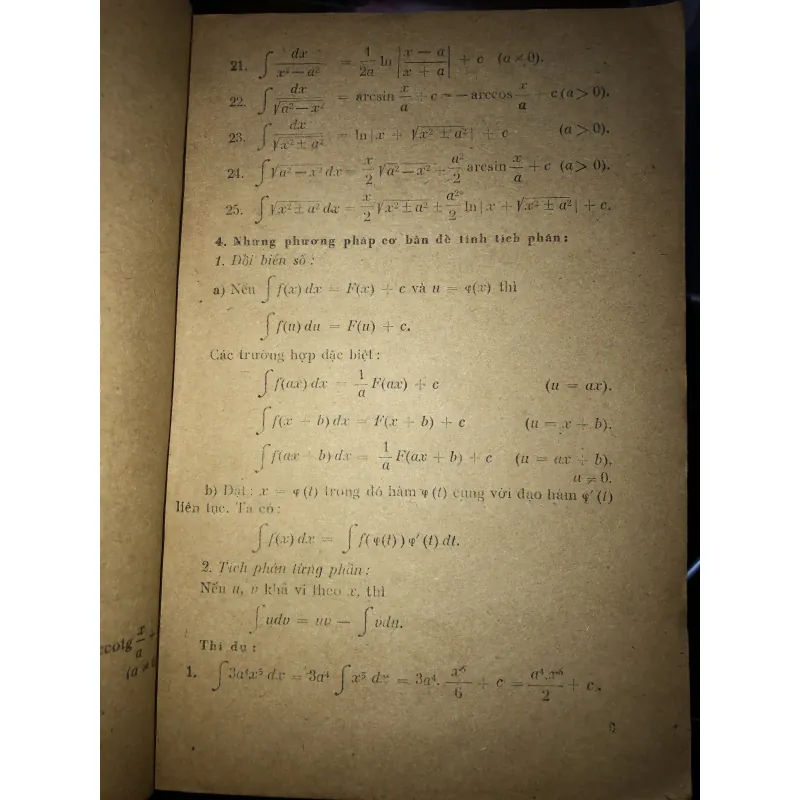 21. ∫ dx / (x² − a²) = 1/2a ln |(x − a)/(x + a)| + c (a ≠ 0).
22. ∫ dx / √(a² − x²) = arcsin x/a + c = − arccos x/a + c (a > 0).
23. ∫ dx / √(x² ± a²) = ln | x + √(x² ± a²) | + c (a > 0).
24. ∫ √(a² − x²) dx = x/2 √(a² − x²) + a²/2 arcsin x/a + c (a > 0).
25. ∫ √(x² ± a²) dx = x/2 √(x² ± a²) ± a²/2 ln | x + √(x² ± a²) | + c.
4. Những phương pháp cơ bản để tính tích phân :
1. Đổi biến số :
a) Nếu ∫ f(x) dx = F(x) + c và u = φ(x) thì
∫ f(u) du = F(u) + c.
Các trường hợp đặc biệt :
∫ f(ax) dx = 1/a F(ax) + c (u = ax).
∫ f(x + b) dx = F(x + b) + c (u = x + b).
∫ f(ax + b) dx = 1/a F(ax + b) + c (u = ax + b).
a ≠ 0.
b) Đặt : x = φ (t) trong đó hàm φ (t) cùng với đạo hàm φ′ (t)
liên tục. Ta có :
∫ f(x) dx = ∫ f( φ(t) ) φ′ (t) dt.
2. Tích phân từng phần :
Nếu u, v khả vi theo x, thì
∫ udv = uv − ∫ vdu.
Thí dụ :
1. ∫ 3a⁴x⁵ dx = 3a⁴ ∫ x⁵ dx = 3a⁴. x⁶/6 + c = a⁴.x⁶/2 + c.
ccotg x/a +
(a ≠ 0